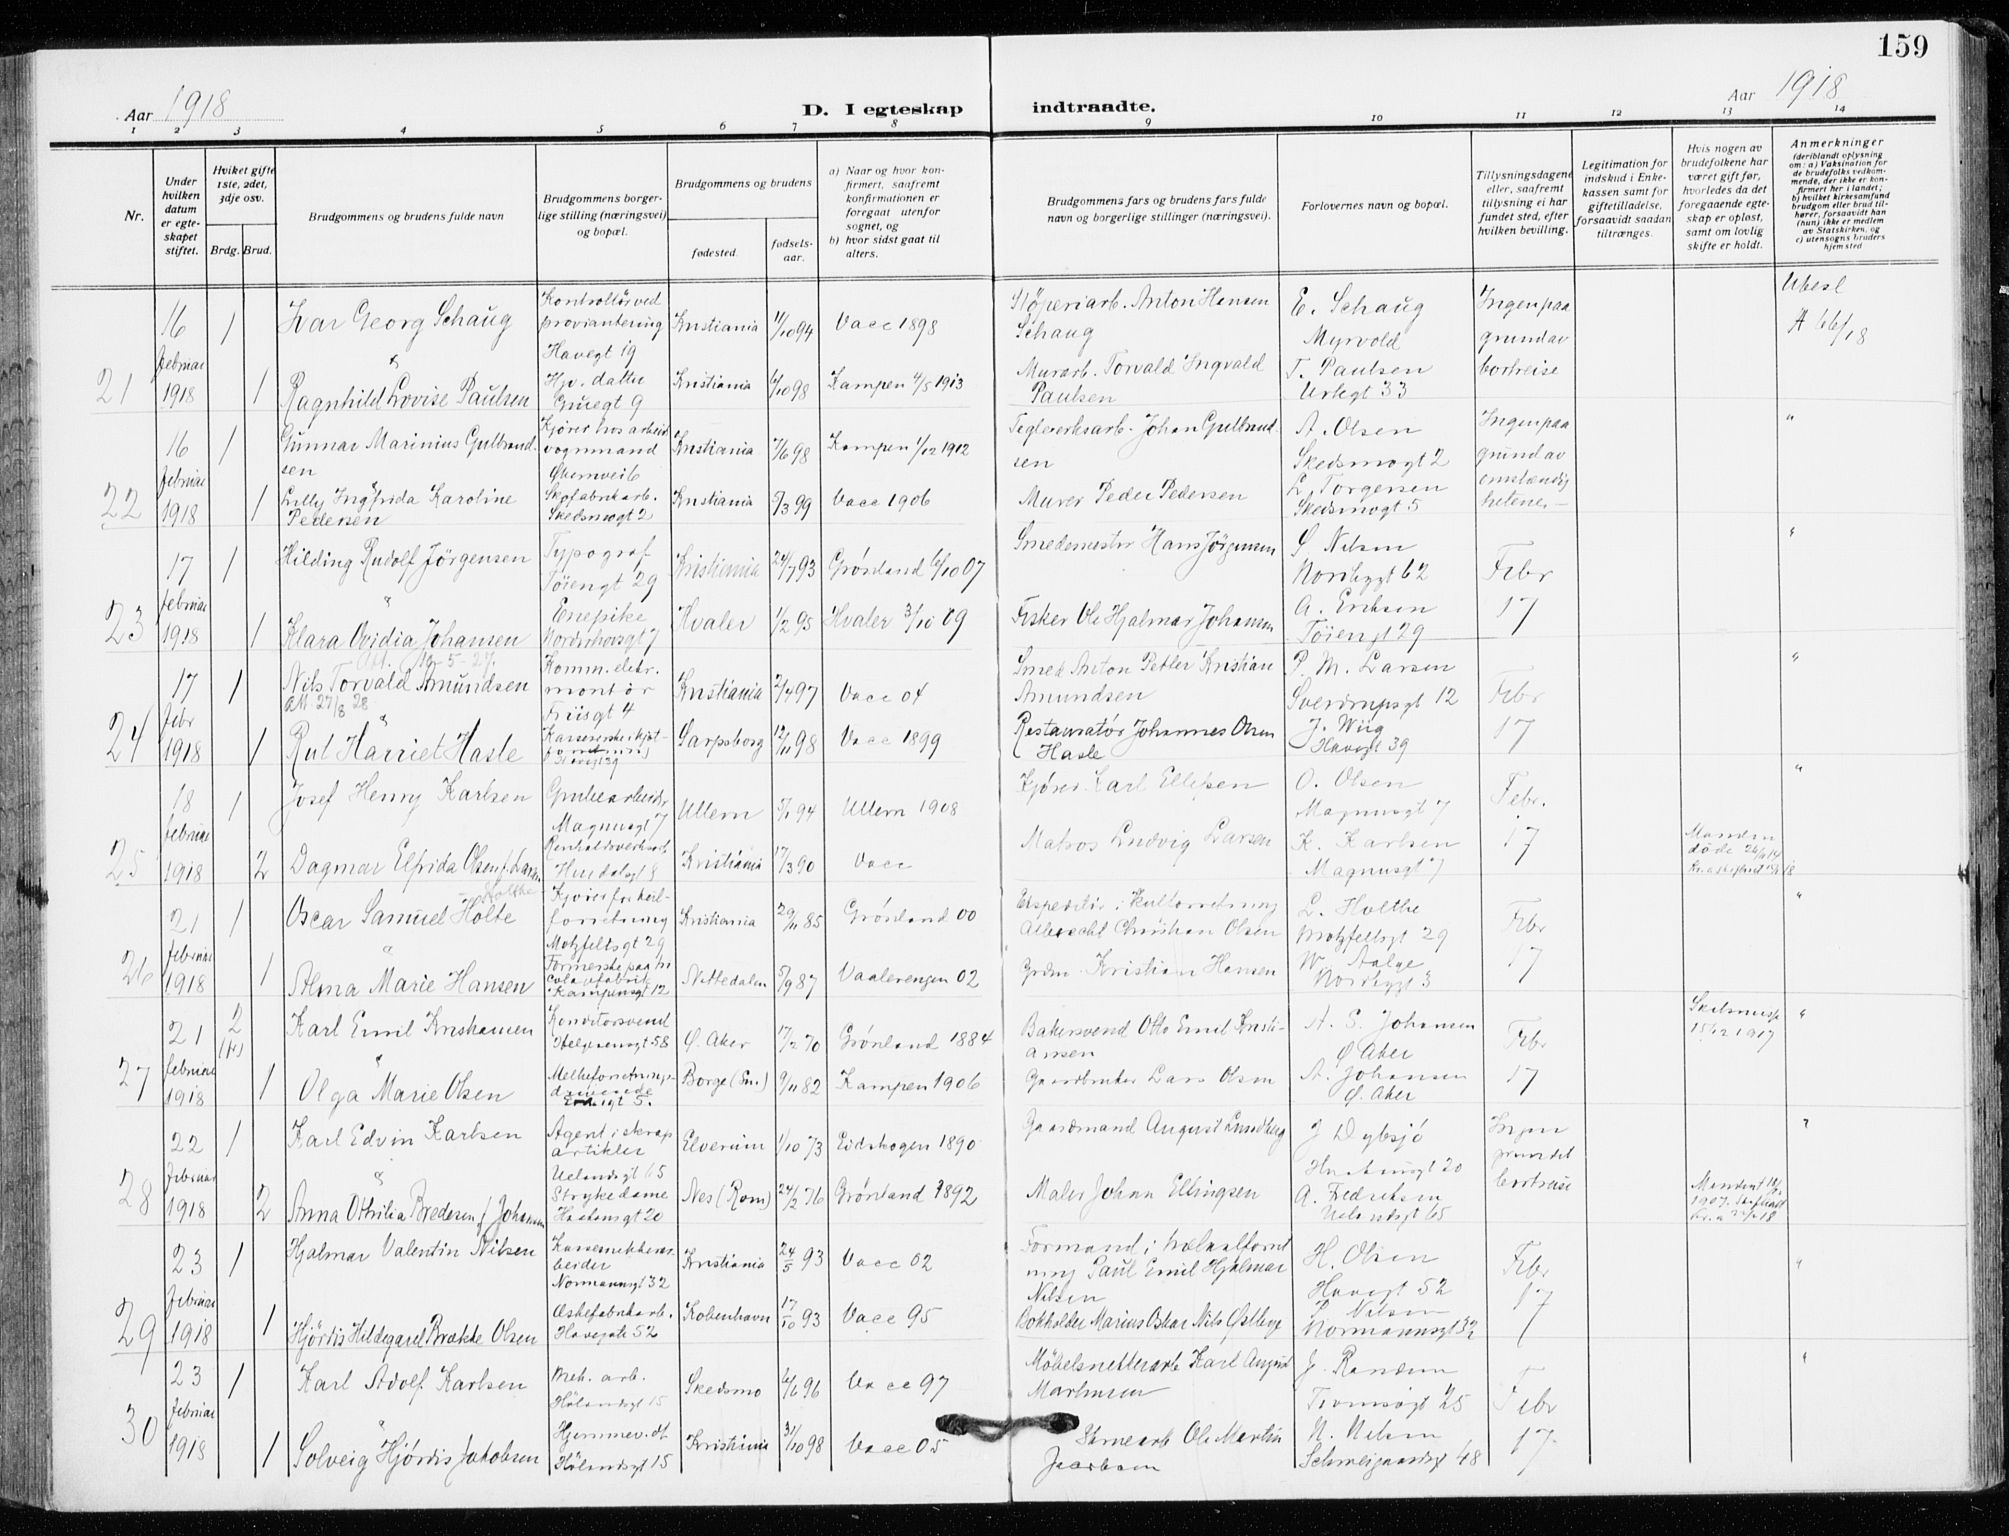 159
Aar 1918
D. I egteskap indtraadte.
Aar 1918
1 2 3 4 5 6 7 8 9 10 11 12 13 14
Nr.
Under hvilken datum er egteskapet stiftet.
Hviket gifte 1ste, 2det, 3dje osv.
Brdg. Brud.
Brudgommens og brudens fulde navn
Brudgommens borgerlige stilling (næringsvei) og bopæl.
Brudgommens og brudens
fødested.
fødselsaar.
a) Naar og hvor konfirmert, saafremt konfirmationen er foregaat utenfor sognet, og
b) hvor sidst gaat til alters.
Brudgommens fars og brudens fars fulde navn og borgerlige stillinger (næringsvei).
Forlovernes navn og bopæl.
Tillysningsdagene eller, saafremt tillysning ei har fundet sted, efter hvilken bevilling.
Legitimation for indskud i Enkekassen samt for giftetilladelse, forsaavidt saadan tiltrænges.
Hvis nogen av brudefolkene har været gift før, hvorledes da det foregaaende egteskap er opløst, samt om lovlig skifte er holdt.
Anmerkninger (deriblandt oplysning om: a) Vaksination for de brudefolks vedkommende, der ikke er konfirmert her i landet; b) hvilket kirkesamfund brudgom eller brud tilhører, forsaavidt han (hun) ikke er medlem av Statskirken, og c) utensogns bruders hjemsted
21
16 februar 1918
1
Ivar Georg Schaug
Kontrollør ved proviantering Havegt 19
Kristiania
1/10 94
Vacc 1898
Støperiarb. Anton Hansen Schaug
E. Schaug Myrvold
Ingen paa grund av bortreise
A 66/18
1
Ragnhild Lovise Paulsen
Hjv. datter Gruegt 9
Kristiania
6/10 98
Kampen 4/5 1913
Murarb. Torvald Ingvald Paulsen
T. Paulsen Urtegt 33
22
16 februar 1918
1
Gunnar Marinius Gulbrandsen
Kjører hos arbeidsvognmand Økernvei 6
Kristiania
7/6 98
Kampen 1/12 1912
Teglverksarb. Johan Gulbrandsen
A. Olsen Skedsmogt 2
Ingen paa grund av omstændighetene
"
1
Lilly Ingfrida Karoline Pedersen
Skofabrikarb. Skedsmogt 2
Kristiania
5/3 99
Vacc 1906
Murer Peder Pedersen
L. Torgersen Skedsmogt 5
23
17 februar 1918
1
Hilding Rudolf Jörgensen
Typograf Töiengt 29
Kristiania
24/7 93
Grønland 6/10 07
Smedemester Hans Jørgensen
S Nilsen Norbygt 62
Febr 17
"
1
Klara Ovidia Johansen
Enepike Nordrehovsgt 7
Hvaler
1/2 95
Hvaler 3/10 09
Fisker Ole Hjalmar Johansen
A. Eriksen Töiengt 29
24
17 febr 1918
1
Nils Torvald Amundsen
Att 27/8 28
Komm. elektr. montör Friisgt 4
Kristiania
2/7 97
Vacc 04
Smed Anton Petter Kristian Amundsen
P. M. Larsen Sverdrupsgt 12
Febr 17
"
1
Rut Harriet Hasle
Sarpsborg
12/11 98
Vacc 1899
Restauratør Johannes Olsen Hasle
J. Wiig Havegt 39
25
18 februar 1918
1
Josef Henry Karlsen
Grubearbeider Magnusgt 7
Ullern
5/1 94
Ullern 1908
Kjører Karl Ellefsen
O. Olsen Magnusgt 7
Febr. 17
"
2
Dagmar Elfrida Olsen f. Larsen
Hurdalsgt 8
Kristiania
17/3 90
Vacc
Matros Ludvig Larsen
K. Karlsen Magnusgt 7
Manden döde
26
21 februar 1918
1
Oscar Samuel Holte
Holthe
Motzfeltsgt 29
Kristiania
29/11 85
Grønland 00
Albrecht Christian Olsen
L. Holthe Motzfeltsgt 29
Febr 17
"
1
Alma Marie Hansen
Kampensgt 12
Nittedalen
5/9 87
Vaalerengen 02
Kristian Hansen
W. Aalge Norbygt 3
27
21 februar 1918
2
Karl Emil Kristiansen
Konditorsvend Helgesensgt 58
Ø. Aker
17/2 70
Grønland 1884
Bakersvend Otto Emil Kristiansen
A. S. Johansen Ø Aker
Febr 17
Skilsmisse 15/12 1917
"
1
Olga Marie Olsen
Borge (Sm.)
9/11 82
Kampen 1906
Gaardbruker Lars Olsen
A. Johansen Ø. Aker
28
22 februar 1918
1
Karl Edvin Karlsen
Agent i skrap artikler Uelandsgt 65
Elverum
1/10 73
Eidskogen 1890
Gaardmand August Lundberg
J Dybsjö
Ingen grundet bortreise
"
2
Anna Othilia Bredesen f. Johansen
Strykedame
Nes (Rom)
24/2 76
Grønland 1892
Maler Johan Ellingsen
A. Fredriksen Uelandsgt 65
29
23 februar 1918
1
Hjalmar Valentin Nilsen
Normannsgt 32
Kristiania
24/5 93
Vacc 02
Formand i Paul Emil Hjalmar Nilsen
H. Olsen Havegt 52
Febr 17
"
1
Hjördis Hildegard Brække Olsen
Æskefabrikarb. Havegate 52
Kobenhavn
17/10 93
Vacc 95
Bokholder Marius Oskar Nils Østbye
S. Nilsen Normannsgt 32
30
23 februar 1918
1
Karl Adolf Karlsen
Mek. arb. Hölandsgt 15
Skedsmo
6/6 96
Vacc 97
Karl August Martinsen
J. Randem Tromsøgt 25
Febr 17
"
1
Solveig Hjördis Jakobsen
Hjemmev. dt Hölandsgt 15
Kristiania
31/10 98
Vacc 05
Ole Martin
N. Nilsen Schweigaardsgt 48